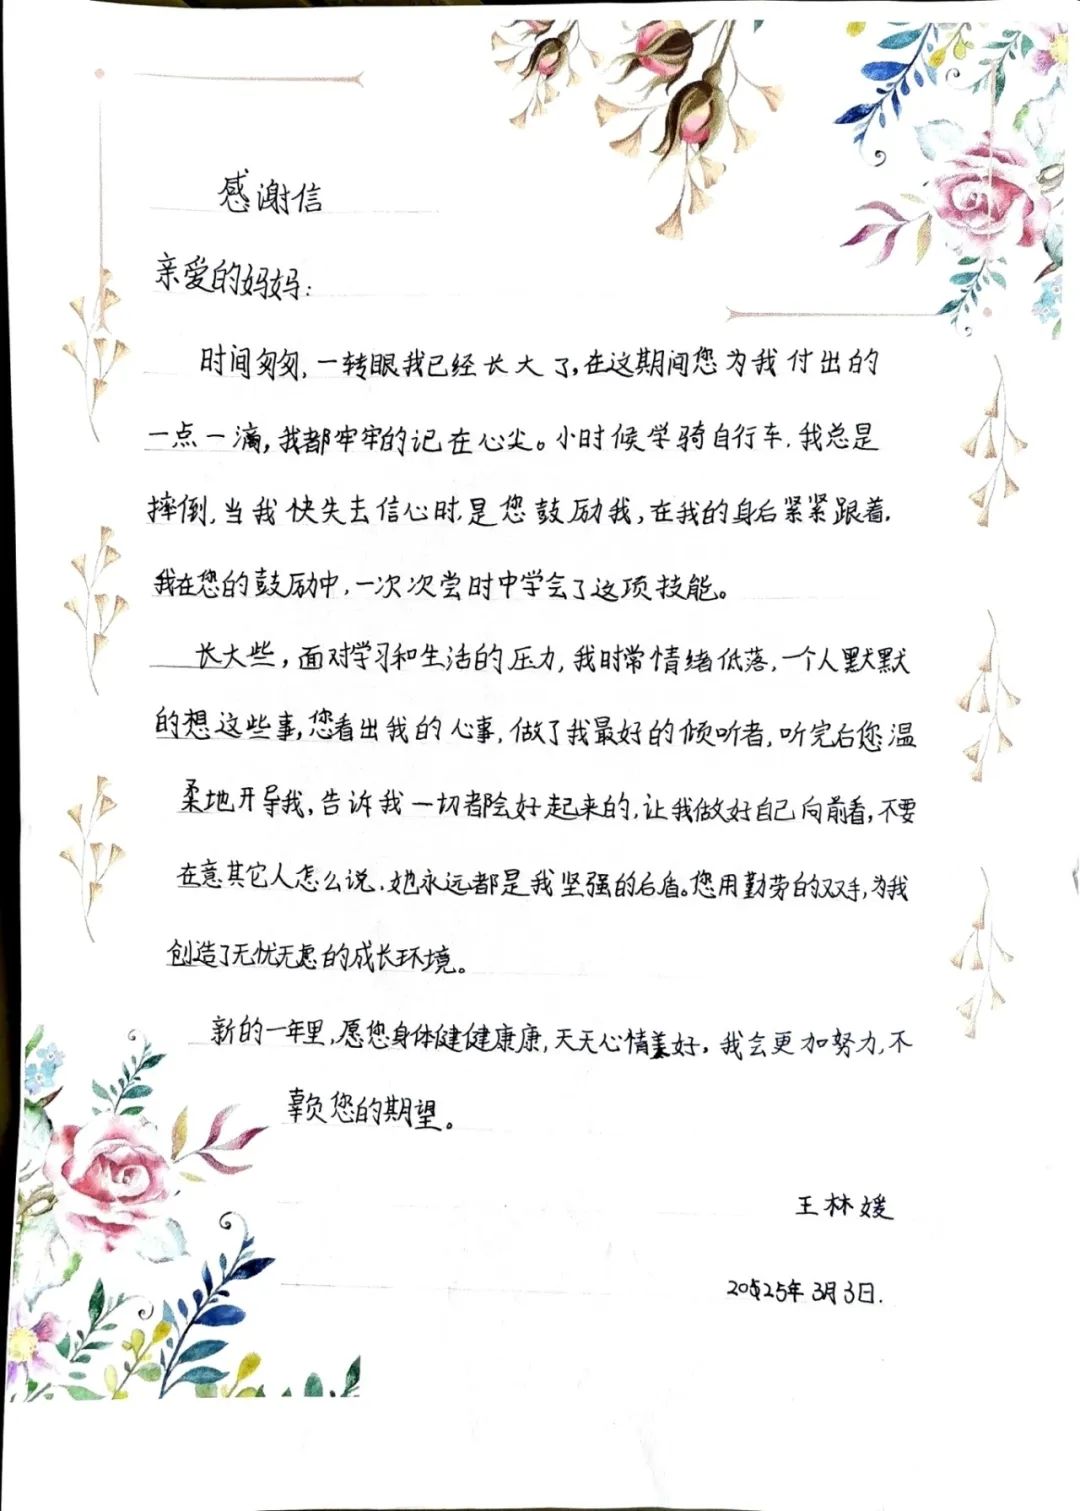 感谢信
亲爱的妈妈：
时间匆匆，一转眼我已经长大了，在这期间您为我付出的
一点一滴，我都牢牢的记在心尖。小时候学骑自行车，我总是
摔倒，当我快失去信心时，是您鼓励我，在我的身后紧紧跟着，
我在您的鼓励中，一次次尝时中学会了这项技能。
长大些，面对学习和生活的压力，我时常情绪低落，一个人默默
的想这些事，您看出我的心事，做了我最好的倾听者，听完后您温
柔地开导我，告诉我一切都会好起来的，让我做好自己向前看，不要
在意其它人怎么说，她永远都是我坚强的后盾。您用勤劳的双手，为我
创造了无忧无虑的成长环境。
新的一年里，愿您身体健健康康，天天心情美好，我会更加努力，不
辜负您的期望。
王林媛
2025年3月3日.